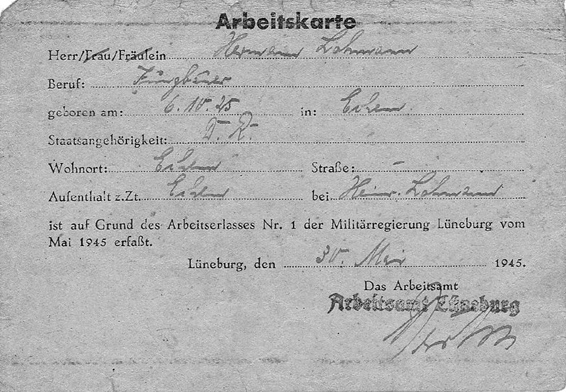 Arbeitskarte
Herr/Frau/Fräulein Hermann Lohmann
Beruf: Jungbauer
geboren am: 6.10.25 in: Echem
Staatsangehörigkeit: D. R.
Wohnort: Echem Straße: -
Aufenthalt z.Zt. Echem bei Heinr. Lohmann
ist auf Grund des Arbeitserlasses Nr. 1 der Militärregierung Lüneburg vom
Mai 1945 erfaßt.
Lüneburg, den 30. Mai 1945.
Das Arbeitsamt
Arbeitsamt Lüneburg